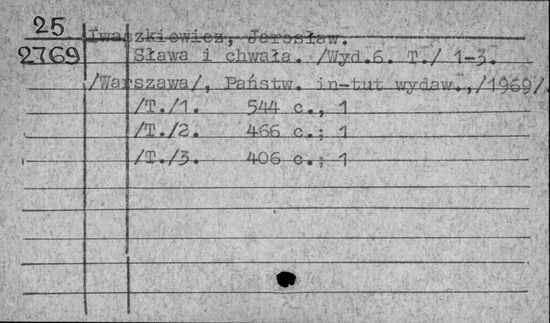 25
2769
Iwaszkiewicz, Jarosław.
Sława i chwała. /Wyd.6. T./ 1-3.
/Warszawa/, Państw. in-tut wydaw.,/1969/.
/T./1. 544 c., 1
/T./2. 466 c.; 1
/T./3. 406 c.; 1